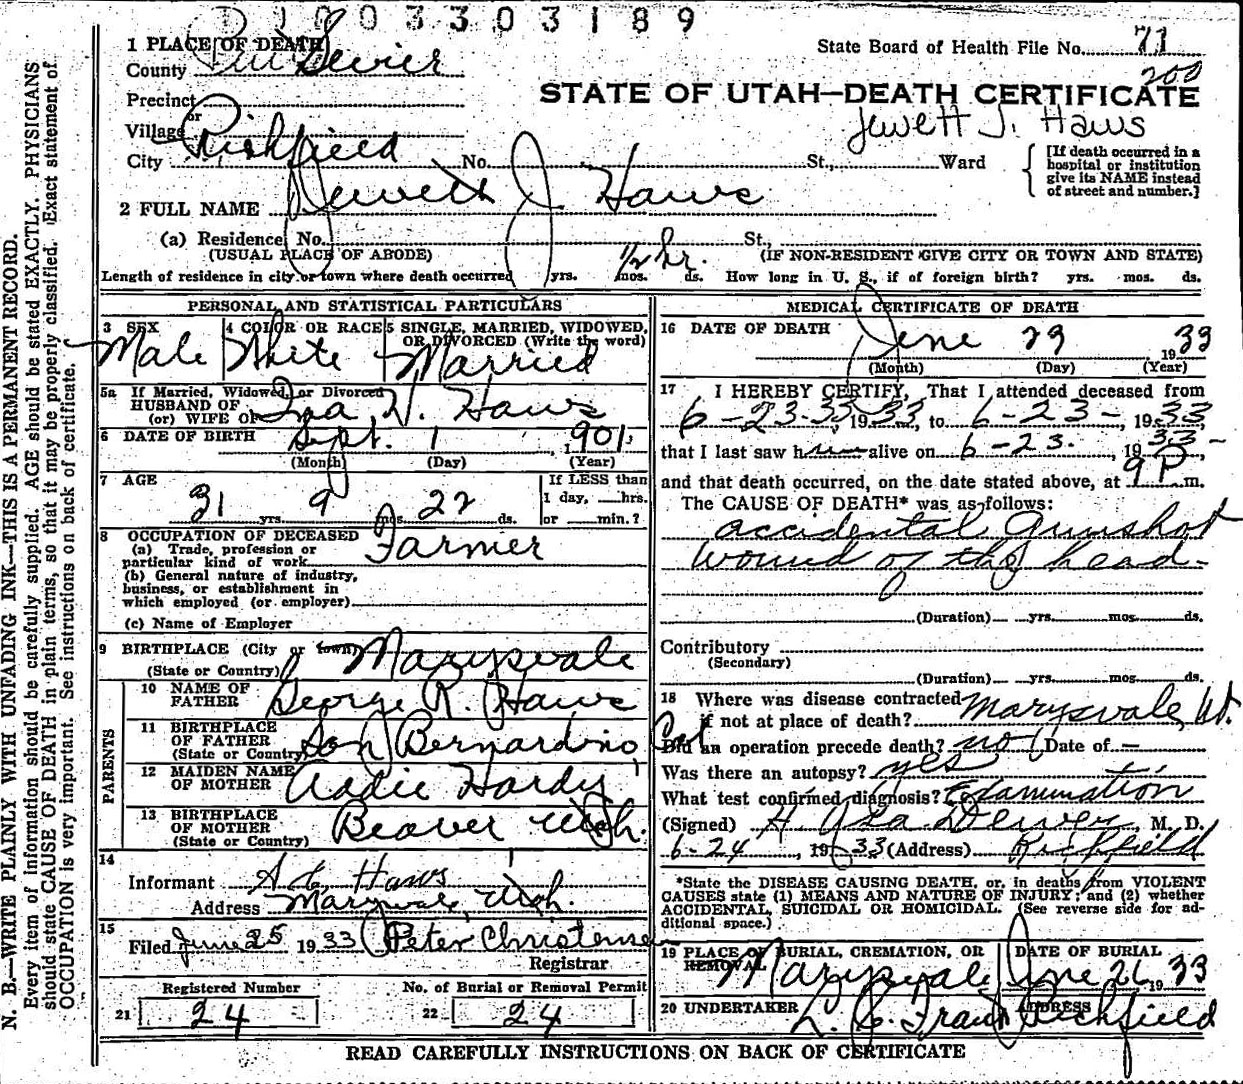 1003303189
1 PLACE OF DEATH
County Sevier
State Board of Health File No. 71
200
Precinct
or
Village
STATE OF UTAH—DEATH CERTIFICATE
Jewett J. Haws
City Richfield No. St., Ward
[If death occurred in a hospital or institution give its NAME instead of street and number.]
2 FULL NAME Jewett J. Haws
(a) Residence No. St.
(USUAL PLACE OF ABODE) (IF NON-RESIDENT GIVE CITY OR TOWN AND STATE)
Length of residence in city or town where death occurred yrs. mos. 1/2 hr. ds. How long in U. S., if of foreign birth? yrs. mos. ds.
PERSONAL AND STATISTICAL PARTICULARS
3 SEX Male
4 COLOR OR RACE White
5 SINGLE, MARRIED, WIDOWED, OR DIVORCED (Write the word) Married
5a If Married, Widowed, or Divorced
HUSBAND OF
(or) WIFE OF Haws
6 DATE OF BIRTH Sept. 1, 1901
(Month) (Day) (Year)
7 AGE
31 yrs. 9 mos. 22 ds.
If LESS than 1 day, hrs. or min.?
8 OCCUPATION OF DECEASED
(a) Trade, profession or particular kind of work Farmer
(b) General nature of industry, business, or establishment in which employed (or employer)
(c) Name of Employer
9 BIRTHPLACE (City or town) Marysvale
(State or Country)
PARENTS
10 NAME OF FATHER George R. Haws
11 BIRTHPLACE OF FATHER (State or Country) San Bernardino Cal
12 MAIDEN NAME OF MOTHER Addie Hardy
13 BIRTHPLACE OF MOTHER (State or Country) Beaver Utah.
14
Informant Haws
Address Marysvale, Utah.
15
Filed June 25 1933 Peter Christensen
Registrar
Registered Number
21 24
No. of Burial or Removal Permit
22 24
MEDICAL CERTIFICATE OF DEATH
16 DATE OF DEATH June 23 1933
(Month) (Day) (Year)
17 I HEREBY CERTIFY, That I attended deceased from
6-23-33, 1933, to 6-23-, 1933,
that I last saw him alive on 6-23-, 1933-
and that death occurred, on the date stated above, at 9 P m.
The CAUSE OF DEATH* was as follows:
accidental Gunshot
wound of the head-
(Duration) yrs. mos. ds.
Contributory
(Secondary)
(Duration) yrs. mos. ds.
18 Where was disease contracted
if not at place of death? Marysvale, Ut.
Did an operation precede death? no Date of —
Was there an autopsy? yes
What test confirmed diagnosis? Examination
(Signed) M. D.
6-24, 1933 (Address) Richfield
*State the DISEASE CAUSING DEATH, or, in deaths from VIOLENT
CAUSES state (1) MEANS AND NATURE OF INJURY; and (2) whether
ACCIDENTAL, SUICIDAL OR HOMICIDAL. (See reverse side for ad-
ditional space.)
19 PLACE OF BURIAL, CREMATION, OR REMOVAL Marysvale
DATE OF BURIAL June 26 1933
20 UNDERTAKER
ADDRESS Richfield
READ CAREFULLY INSTRUCTIONS ON BACK OF CERTIFICATE
N. B.—WRITE PLAINLY WITH UNFADING INK—THIS IS A PERMANENT RECORD.
Every item of information should be carefully supplied. AGE should be stated EXACTLY. PHYSICIANS
should state CAUSE OF DEATH in plain terms, so that it may be properly classified. Exact statement of
OCCUPATION is very important. See instructions on back of certificate.